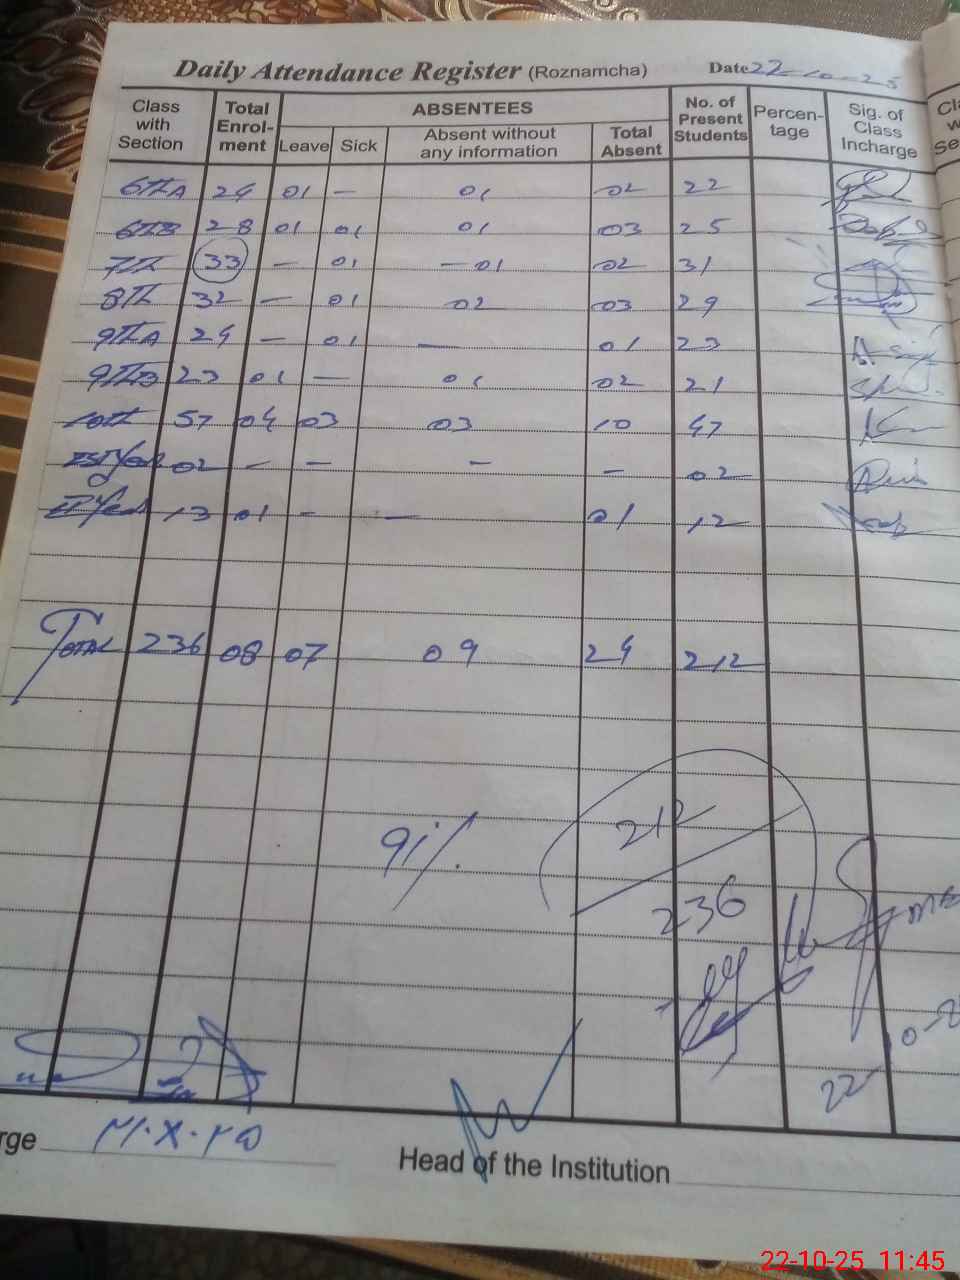 Daily Attendance Register (Roznamcha) Date 22-10-25
Class with Section Total Enrol-ment ABSENTEES No. of Present Students Percen-tage Sig. of Class Incharge
Leave Sick Absent without any information Total Absent
6th A 24 01 - 01 02 22
6th B 28 01 01 01 03 25
7th 33 - 01 - 01 02 31
8th 32 - 01 02 03 29
9th A 24 - 01 - 01 23
9th B 23 01 - 01 02 21
10th 57 04 03 03 10 47
Ist Year 02 - - - - 02
II Year 13 01 - - 01 12
Total 236 08 07 09 24 212
91%
212
236
22
rge
Head of the Institution
22-10-25 11:45